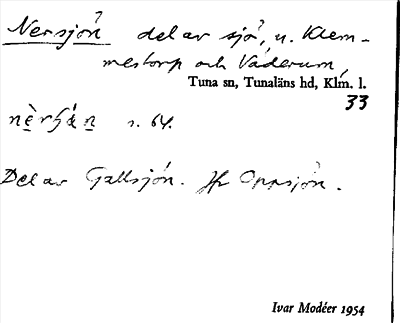 Nersjön del av sjö, n. Klem-
mestorp och Väderum,
Tuna sn, Tunaläns hd, Klm. l.
33
s. 64.
Del av Gallsjön. Jfr Oppsjön.
Ivar Modéer 1954